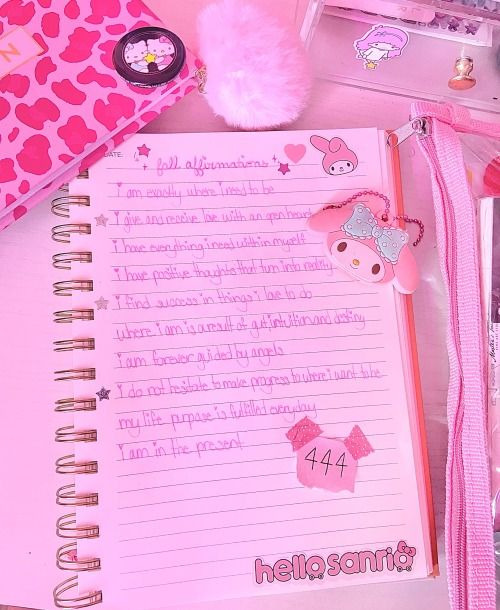 N
DATE:
fall affirmations
i am exactly where i need to be
i give and receive love with an open heart
i have everything i need within myself
i have positive thoughts that turn into reality
i find success in things i love to do
where i am is a result of gut intuition and destiny
i am forever guided by angels
i do not hesitate to make progress to where i want to be
my life purpose is fulfilled everyday
i am in the present
444
hello sanrio